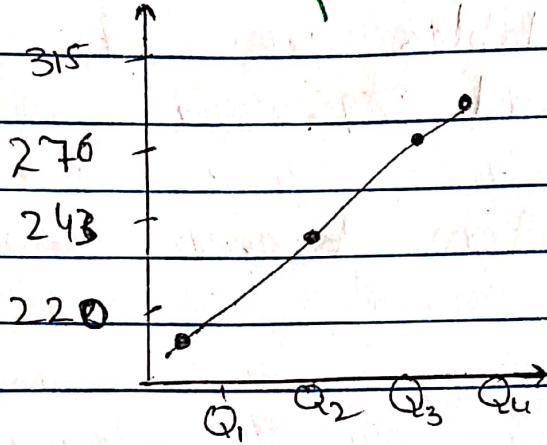 315
270
243
220
Q1 Q2 Q3 Q4